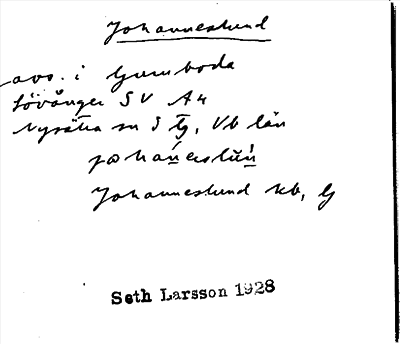 Johanneslund
avs. i Gumboda
Lövånger SV A4
Nysätra sn S Tg, Vb län
johaneslun
Johanneslund kb, G
Seth Larsson 1928